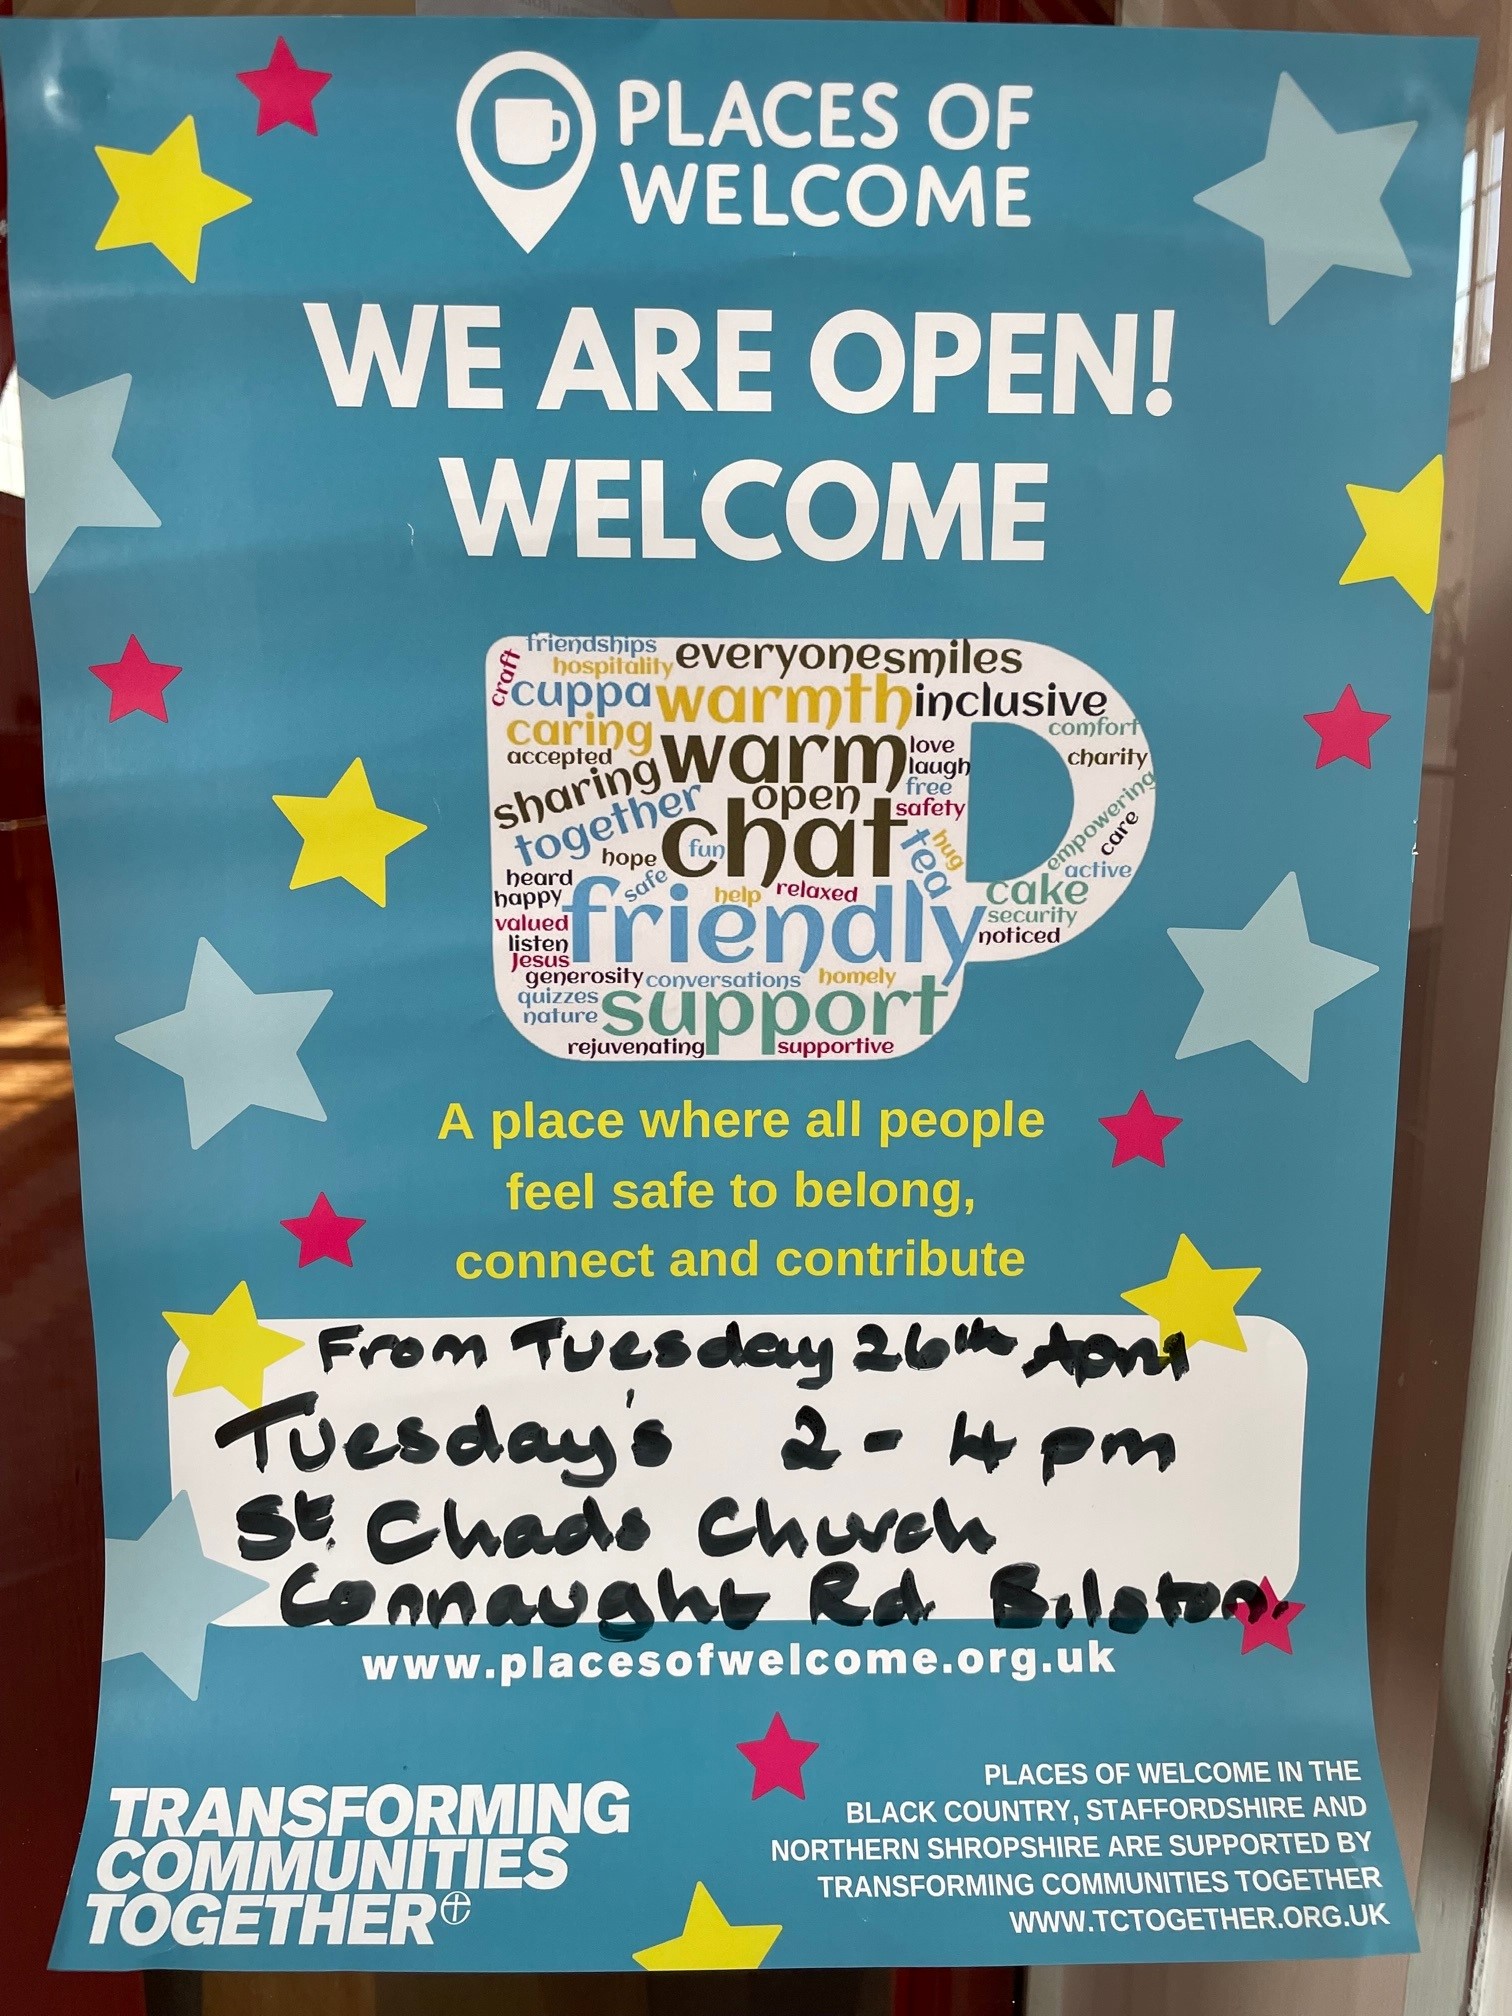 PLACES OF
WELCOME
WE ARE OPEN!
WELCOME
friendships
craft
hospitality
everyone smiles
cuppa warmth inclusive
caring
comfort
accepted
warm
love
charity
laugh
sharing
open
free
safety
empowering
together
chat
care
hope
fun
tea
hug
heard
safe
active
happy
help
relaxed
cake
valued
friendly
security
listen
noticed
Jesus
generosity conversations homely
quizzes
support
nature
rejuvenating
supportive
A place where all people
feel safe to belong,
connect and contribute
From Tuesday 26th April
Tuesday's 2 - 4 pm
St. Chads Church
Connaught Rd. Bilston.
www.placesofwelcome.org.uk
TRANSFORMING
COMMUNITIES
TOGETHER
PLACES OF WELCOME IN THE
BLACK COUNTRY, STAFFORDSHIRE AND
NORTHERN SHROPSHIRE ARE SUPPORTED BY
TRANSFORMING COMMUNITIES TOGETHER
WWW.TCTOGETHER.ORG.UK